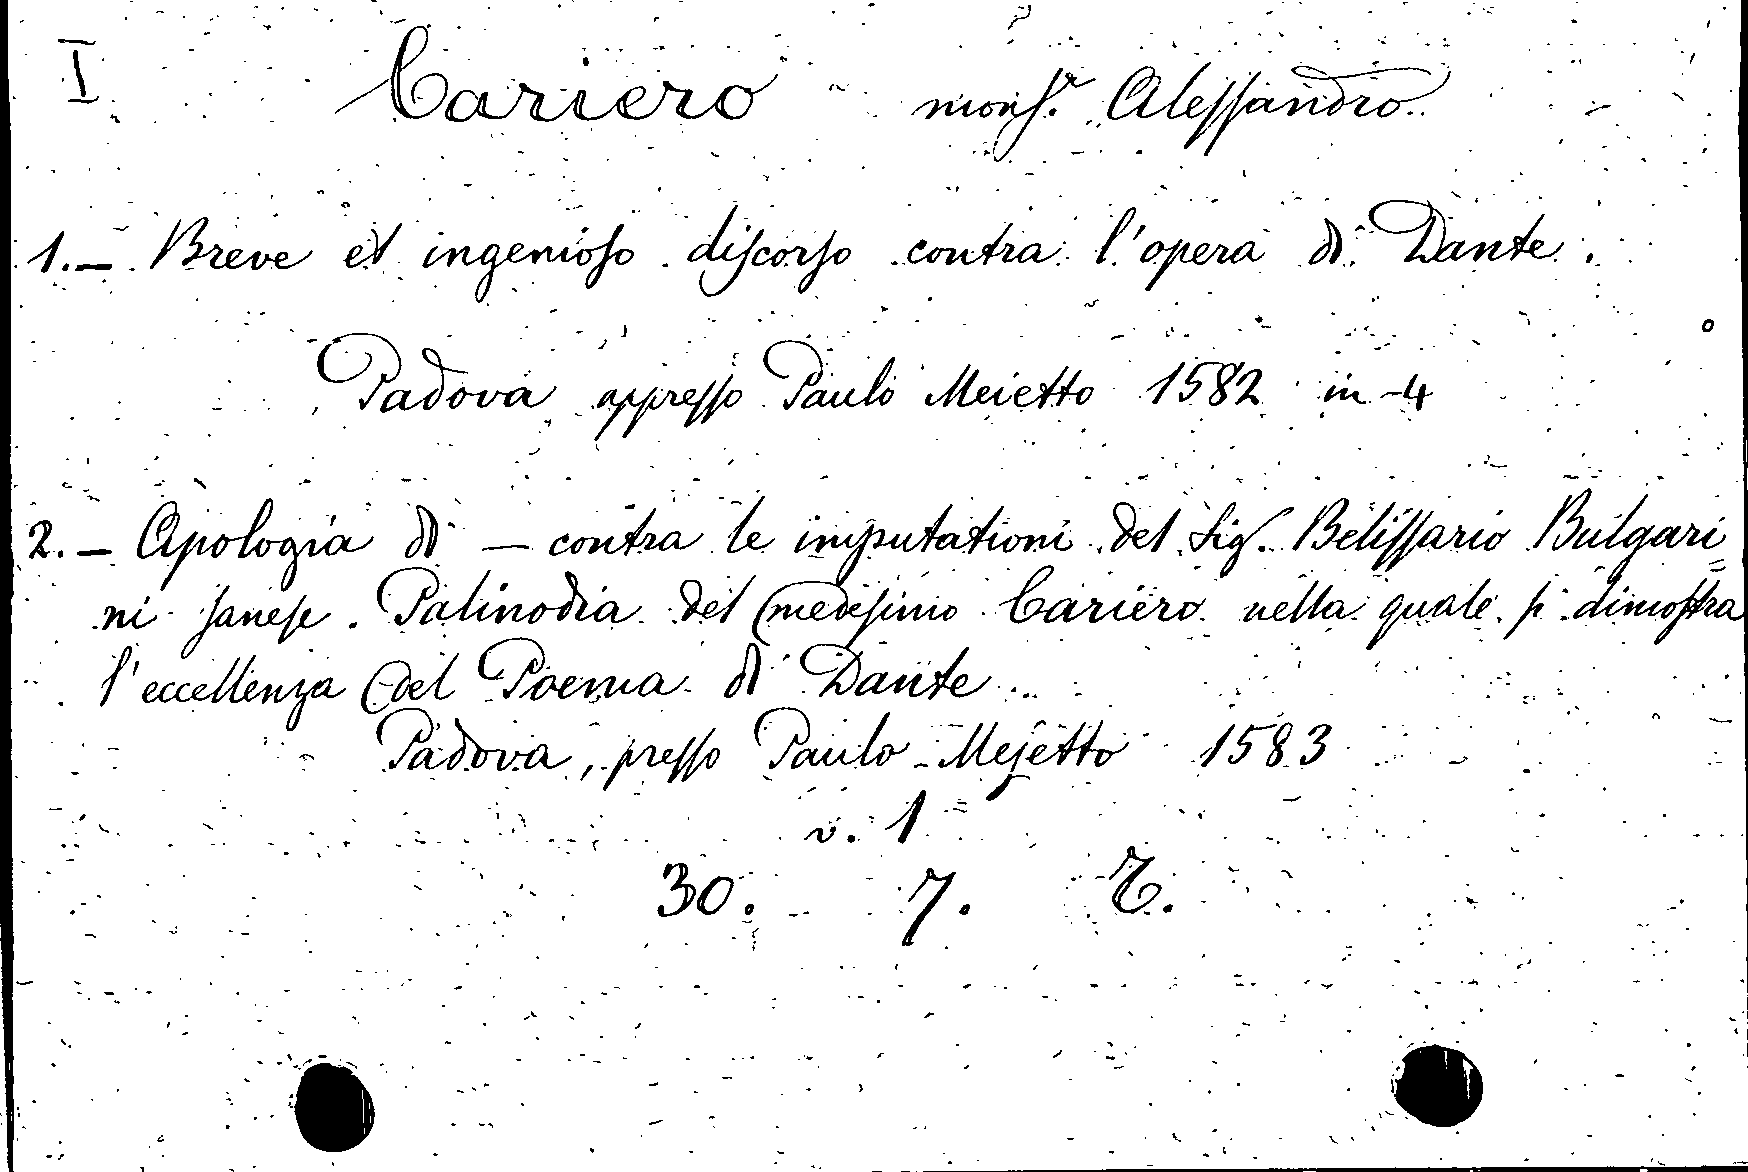 I Cariero monsr. Alessandro.
1. – Breve et ingenioso discorso contra l'opera di Dante.
Padova appresso Paulo Meietto 1582 in-4
2. – Apologia di — contra le imputationi del Sig. Belissario Bulgari=
ni sanese. Palinodia del medesimo Cariero nella quale si dimostra
l'eccellenza del Poema di Dante
Padova, presso Paulo Mejetto 1583
v. 1
30. 7.